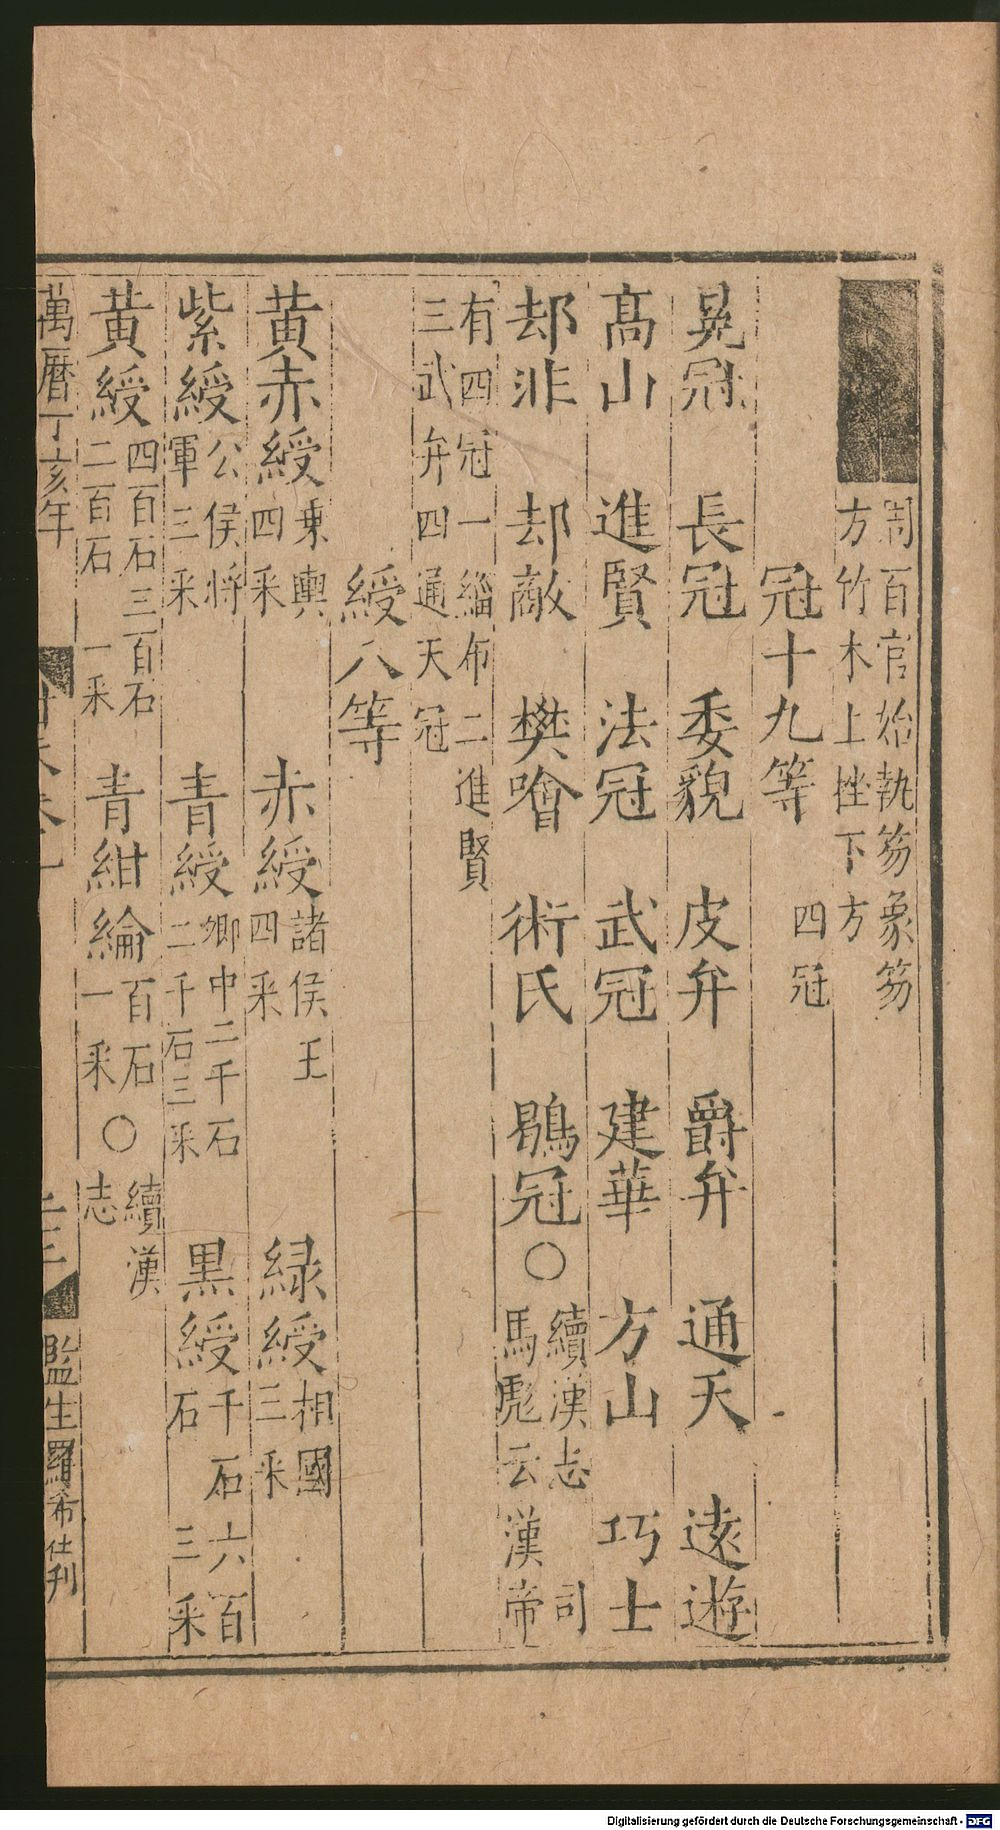 周百官始執笏象笏
方竹木上挫下方
冠十九等 四冠
冕冠 長冠 委貌 皮弁 爵弁 通天 遠遊
髙山 進賢 法冠 武冠 建華 方山 巧士
却非 却敵 樊噲 術氏 鶡冠〇續漢志司
馬彪云漢帝
有四冠一緇布二進賢
三武弁四通天冠
綬八等
黄赤綬乗輿四采 赤綬諸侯王四采 緑綬相國三采
紫綬公侯将軍三采 青綬卿中二千石二千石三采 黒綬千石六百石三采
黄綬四百石三百石二百石一采 青紺綸百石一采〇續漢志
萬曆丁亥年
監生羅希仕刋
Digitalisierung gefördert durch die Deutsche Forschungsgemeinschaft - DFG